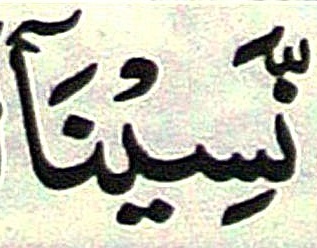 نَّسِيْنَآ